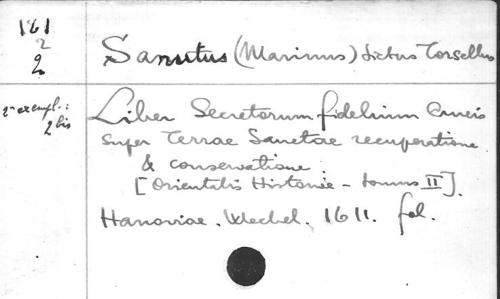 161
2
2
Sanutus (Marinus) dictus Torsellus
2e exempl.:
2 bis
Liber Secretorum fidelium Crucis
super Terrae Sanctae recuperatione
& conservatione
[Orientalis Historiae - tomus II].
Hanoviae. Wechel. 1611. fol.